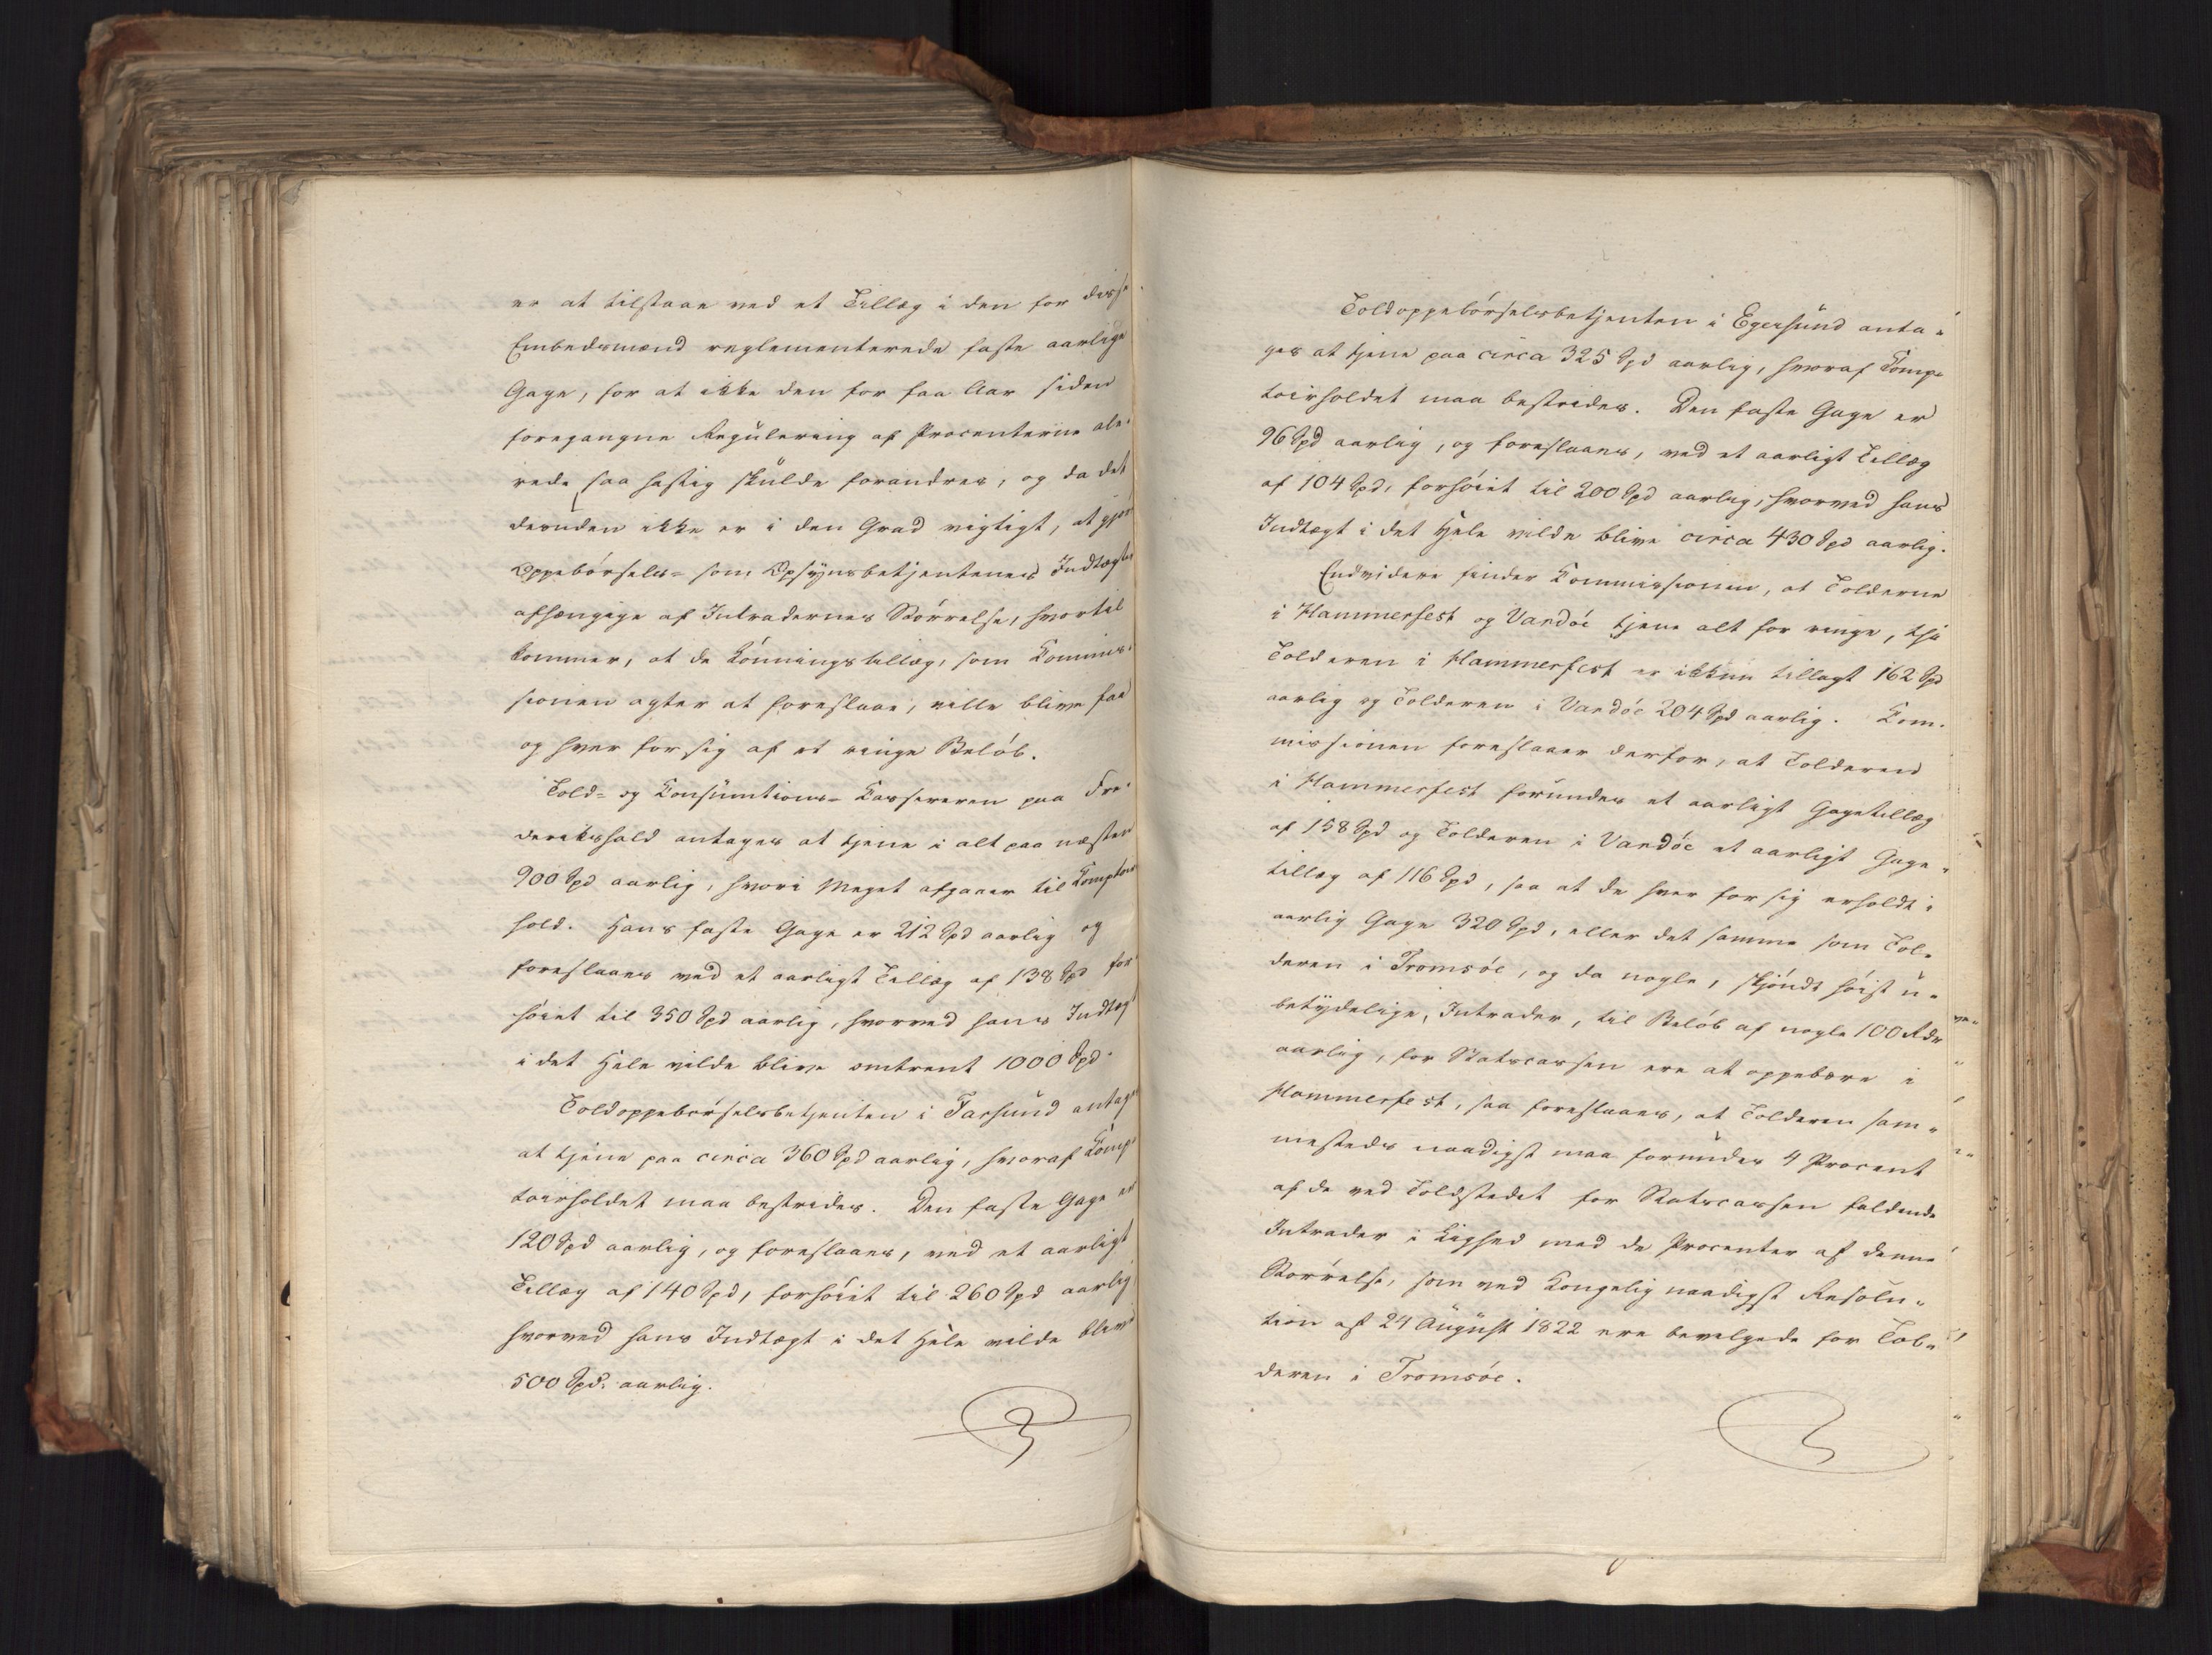 er at tilstaae ved et Tillæg i den for disse
Embedsmænd reglementerede faste aarlige
Gage, for at ikke den for faa Aar siden
foregangne Regulering af Procenterne alle-
rede saa hastig skulde forandres, og da det
desuden ikke er i den Grad vigtigt, at gjøre
Oppebørsels- som Opsynsbetjentenes Indtægter
afhængige af Intradernes Størrelse, hvortil
kommer, at de Lønningstillæg, som Commis-
sionen agter at foreslaae, ville blive faa
og hver for sig af et ringe Beløb.
Told- og Konsumtions-Kassereren paa Fre-
derikshald antages at tjene i alt paa næsten
900 Spd aarlig, hvori Meget afgaaer til Komptoir
hold. Hans faste Gage er 212 Spd aarlig og
foreslaaes ved et aarligt Tillæg af 138 Spd for-
høiet til 350 Spd aarlig, hvorved hans Indtægt
i det Hele vilde blive omtrent 1000 Spd.
Toldoppebørselsbetjenten i Farsund antages
at tjene paa circa 360 Spd aarlig, hvoraf Komp-
toirholdet maa bestrides. Den faste Gage er
120 Spd aarlig, og foreslaaes, ved et aarligt
Tillæg af 140 Spd, forhøiet til 260 Spd aarlig
hvorved hans Indtægt i det Hele vilde blive
500 Spd. aarlig.
Toldoppebørselsbetjenten i Egersund anta-
ges at tjene paa circa 325 Spd aarlig, hvoraf Komp-
toirholdet maa bestrides. Den faste Gage er
96 Spd aarlig, og foreslaaes, ved et aarligt Tillæg
af 104 Spd, forhøiet til 200 Spd aarlig, hvorved hans
Indtægt i det Hele vilde blive circa 430 Spd aarlig.
Endvidere finder Kommissionen, at Tolderne
i Hammerfest og Vardöe tjene alt for ringe, thi
Tolderen i Hammerfest er ikkun tillagt 162 Spd
aarlig og Tolderen i Vardöe 204 Spd aarlig. Kom-
missionen foreslaaer derfor, at Tolderen
i Hammerfest forundes et aarligt Gagetillæg
af 158 Spd og Tolderen i Vardöe et aarligt Gage-
tillæg af 116 Spd, saa at de hver for sig erholdt i
aarlig Gage 320 Spd, eller det samme som Tol-
deren i Tromsöe, og da nogle, skjøndt høist u-
betydelige, Intrader, til Beløb af nogle 100 Rdr
aarlig, for Statscassen ere at oppebære i
Hammerfest, saa foreslaaes, at Tolderen sam-
mesteds naadigst maa forundes 4 Procent
af de ved Toldstedet for Statscassen faldende
Intrader i Lighed med de Procenter af denne
Størrelse, som ved Kongelig naadigst Resolu-
tion af 24 August 1822 ere bevilgede for Tol-
deren i Tromsöe.